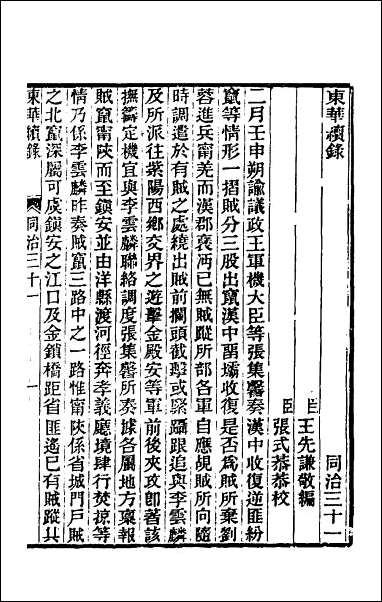 東華續錄
同治三十一
臣王先謙敬編
臣張式恭恭校
二月壬申朔諭議政王軍機大臣等張集馨奏漢中收復逆匪紛
竄等情形一摺賊分三股出竄漢中留壩收復是否為賊所棄劉
蓉進兵甯羌而漢郡褒沔已無賊蹤所部各軍自應覘賊所向隨
時調遣於有賊之處繞出賊前攔頭截擊或緊躡跟追與李雲麟
及所派往紫陽西鄉交界之遊擊金殿安等軍前後夾攻卽著該
撫籌定機宜與李雲麟聯絡調度張集馨所奏據各屬地方稟報
賊竄甯陝而至鎮安並由洋縣渡河徑奔孝義廳境肆行焚掠等
情乃係李雲麟昨奏賊竄三路中之一路惟甯陝係省城門戶賊
之北竄深屬可虞鎮安之江口及金鎖橋距省匪遙已有賊蹤其
東華續錄
同治三十一
一